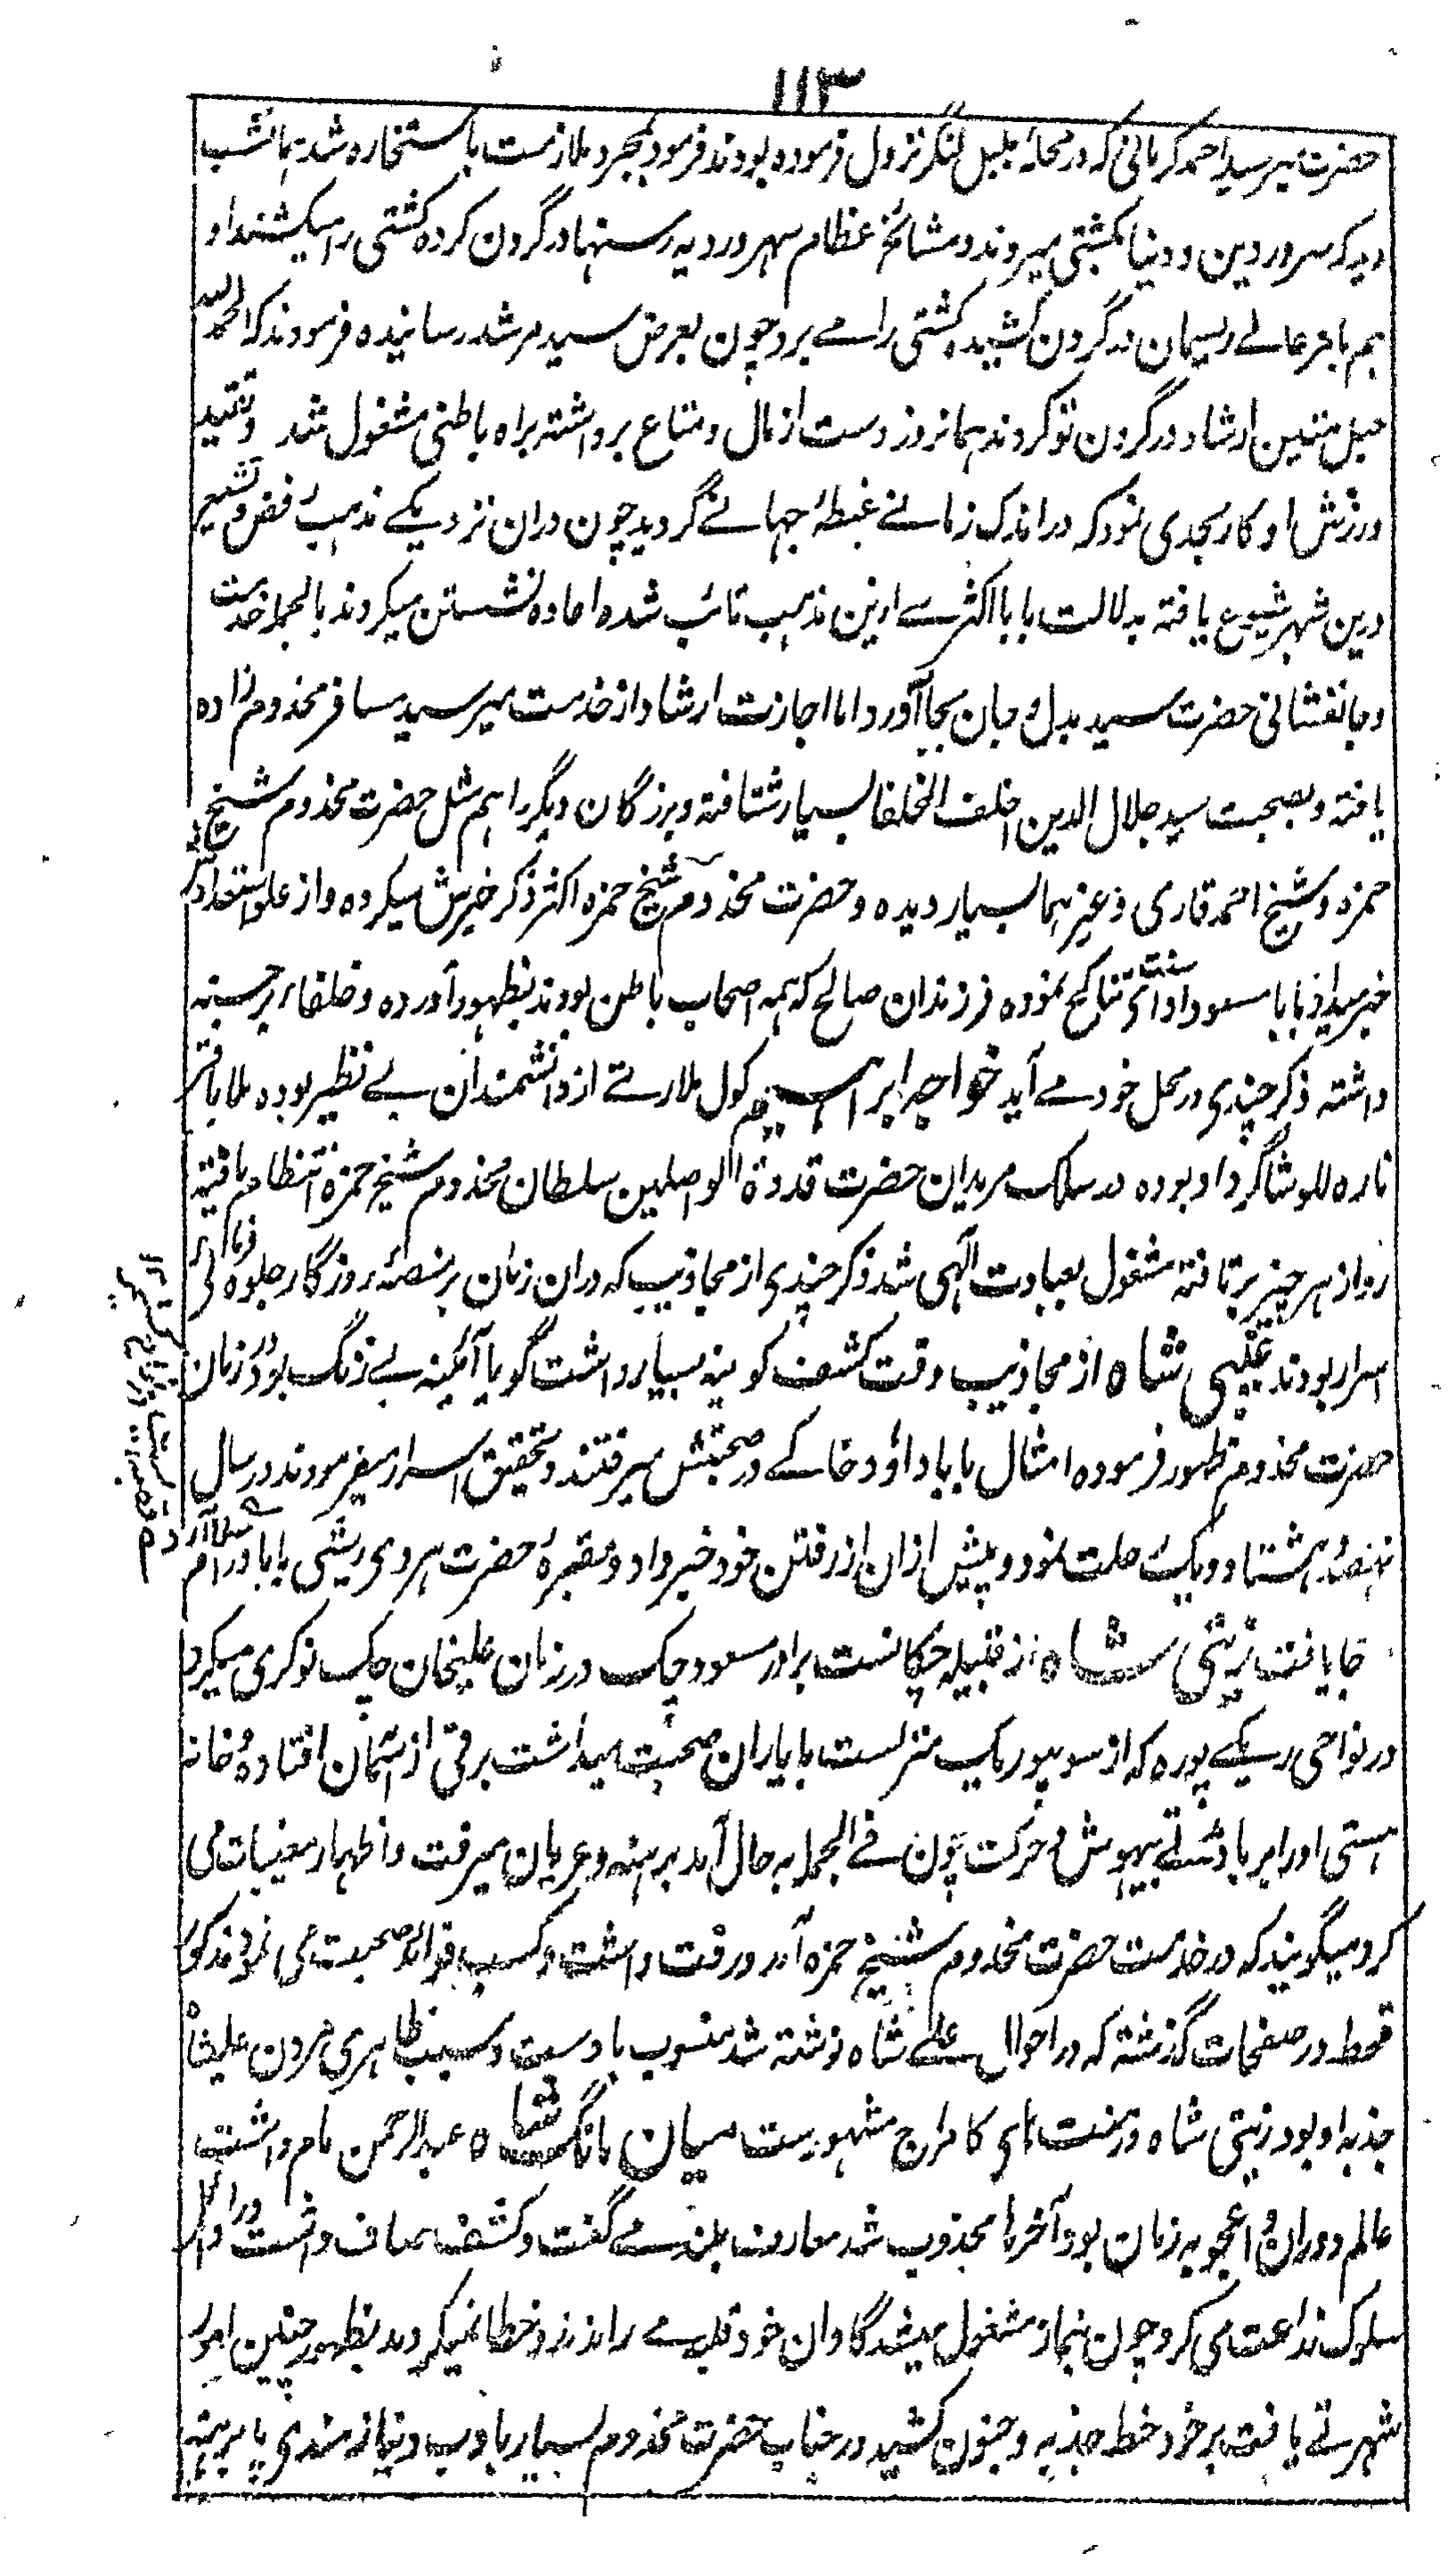 ۱۱۳
حضرت میر سید احمد کرمانی که در محلهٔ بلبل لنگر نزول فرموده بودند فرمود بمجرد ملازمت باستخاره شد همانشب
دید که سرور دین و دنیا بکشتی میروند و مشائخ عظام سهروردیه رسنها در گردن کرده کشتی را میکشند او
هم با هر عالے ریسمان در گردن کشیده کشتی را مے برد چون بعرض سید مرشد رسانیده فرمودند که الحمد لله
حبل متین ارشاد در گردن تو کردند همانروز دست از مال و متاع برداشته براه باطنی مشغول شد و تقید
ورزش اوکار بحدی نمود که در اندک زمانے غبطهٔ جهانے گردید چون دران نزدیکے مذهب رفض و تشیع
درین شهر شیوع یافته بدلالت بابا اکثرے ازین مذهب تائب شده اعاده نشستن میکردند بالجمله خدمت
و جانفشانی حضرت سید بدل و جان بجا آورد اما اجازت ارشاد از خدمت میر سید مسافر مخدوم زاده
یافته و بصحبت سید جلال الدین اخلف الخلفا بسیار شتافته و بزرگان دیگر را هم مثل حضرت مخدوم شیخ
حمزه و شیخ احمد قاری و غیرهما بسیار دیده و حضرت مخدوم شیخ حمزه اکثر ذکر خیرش میکرده و از علو استعدادش
خبر میداد بابا مسعود ادای سنت تناکح نموده فرزندان صالح که همه اصحاب باطن بودند بظهور آورده و خلفاء برجسته
داشته ذکر چندی در محل خود مے آید خواجه ابراهیم کول ملارتے از دانشمندان بے نظیر بوده ملا باقر
ناره للو شاگرد او بوده در سلک مریدان حضرت قدوة الواصلین سلطان مخدوم شیخ حمزه انتظام یافته
رو از هر چیز برتافته مشغول بعبادت الهی شد ذکر چندی از مجاذیب که دران زمان بر منصهٔ روزگار جلوه فرمائی
اسرار بودند غیبی شاه از مجاذیب وقت کشف کونیه بسیار داشت گویا آئینه بے زنگ بود در زمان
حضرت مخدوم ظهور فرموده امثال بابا داؤد خاکے در صحبتش میرفتند و تحقیق اسرار میفرمودند در سال
نهصد و هشتاد و یک رحلت نمود و پیش ازان از رفتن خود خبر داد و مقبرهٔ حضرت هردی ریشی بابا در آرام
جا یافت زیتی شاه از قبیله چکانست برادر مسعود چک در زمان علیخان چک نوکری میکرد
در نواحی ریکے پوره که از سوپور یک منزلست با یاران صحبت میداشت برقی از آسمان افتاده خانه
هستی او را بر باد داد مدتے بیهوش و بیحرکت چون فے الجمله به حال آمد برهنه و عریان میرفت و اظهار مغیبات می
کرد میگویند که در خدمت حضرت مخدوم شیخ حمزه آمد و رفت داشت و کسب فوائد صحبت می نمود مذکور
قحط در صفحات گذشته که در احوال علے شاه نوشته شد منسوب باوست و سبب ظاهری مردن علیشاه
جذبه او بود زیتی شاه در کامراج مشهورست میان مانگ شاه عبدالرحمن نام داشت
عالم دوران و اعجوبه زمان بود آخرها مجذوب شد معارف بلند مے گفت و کشف صاف داشت در اوائل
سلوک زراعت می کرد چون بنماز مشغول میشد گاوان خود قلبه مے راندند و خطا نمیکردند بظهور چنین امور
شهرتے یافت بر خود خط جذبه و جنون کشید در جناب حضرت مخدوم بسیار با ادب و نیازمندی پا برهنه